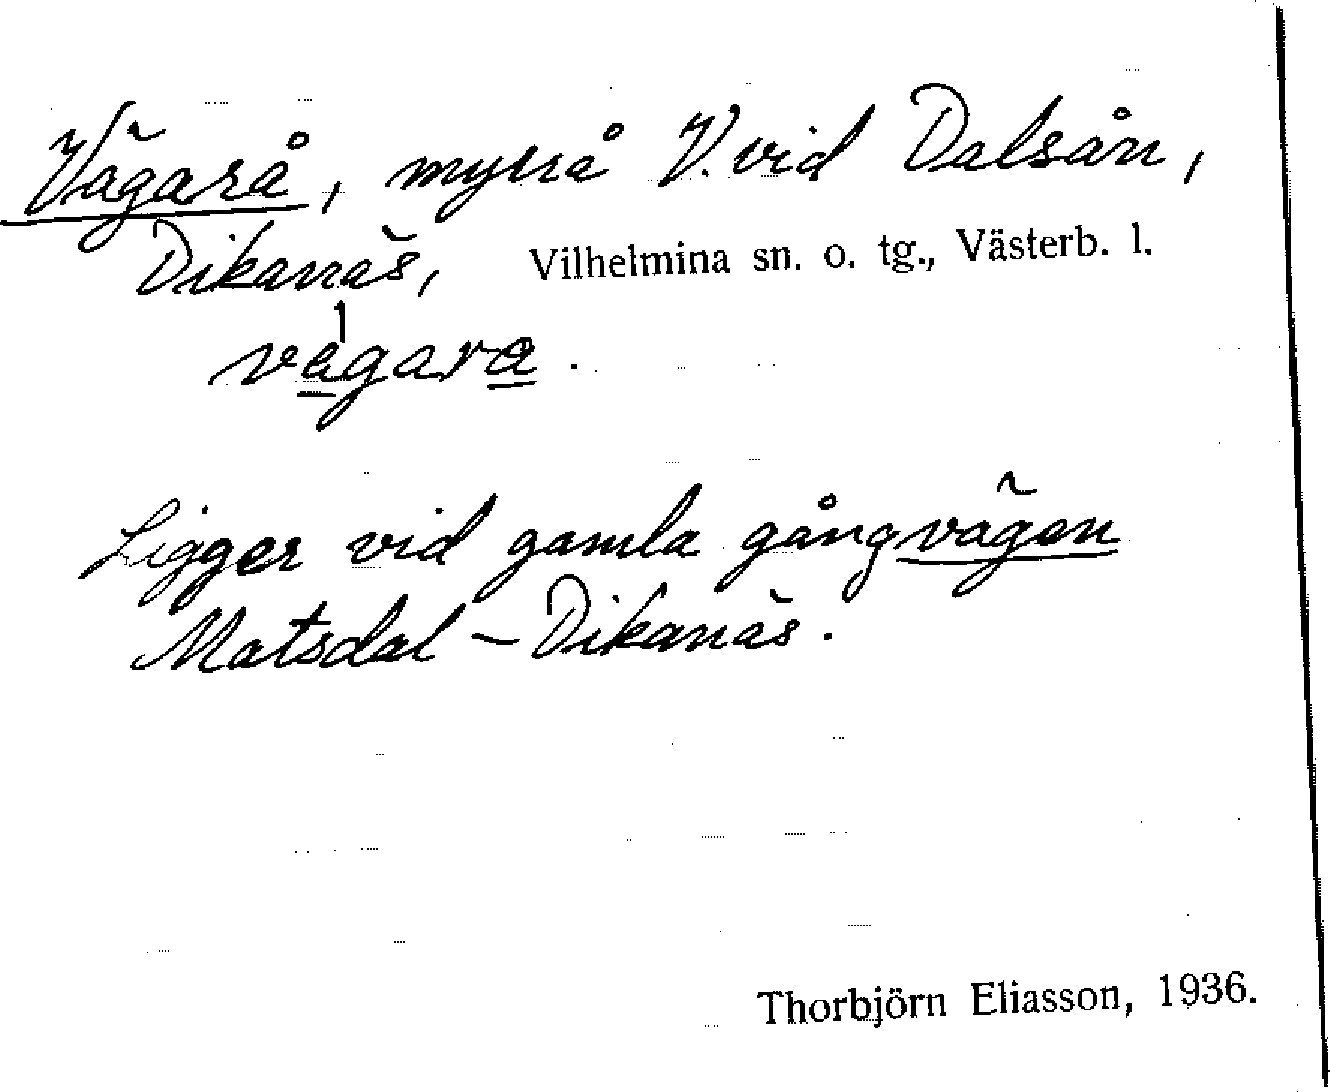 Vägarå, myrrå V. vid Dalsån,
Dikanäs, Vilhelmina sn. o. tg., Västerb. l.
va̲ˈgara̲.
Ligger vid gamla gångvägen
Matsdal – Dikanäs.
Thorbjörn Eliasson, 1936.